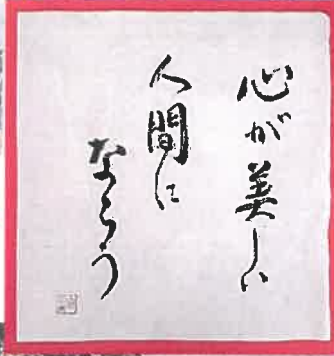 心が美しい
人間に
なろう